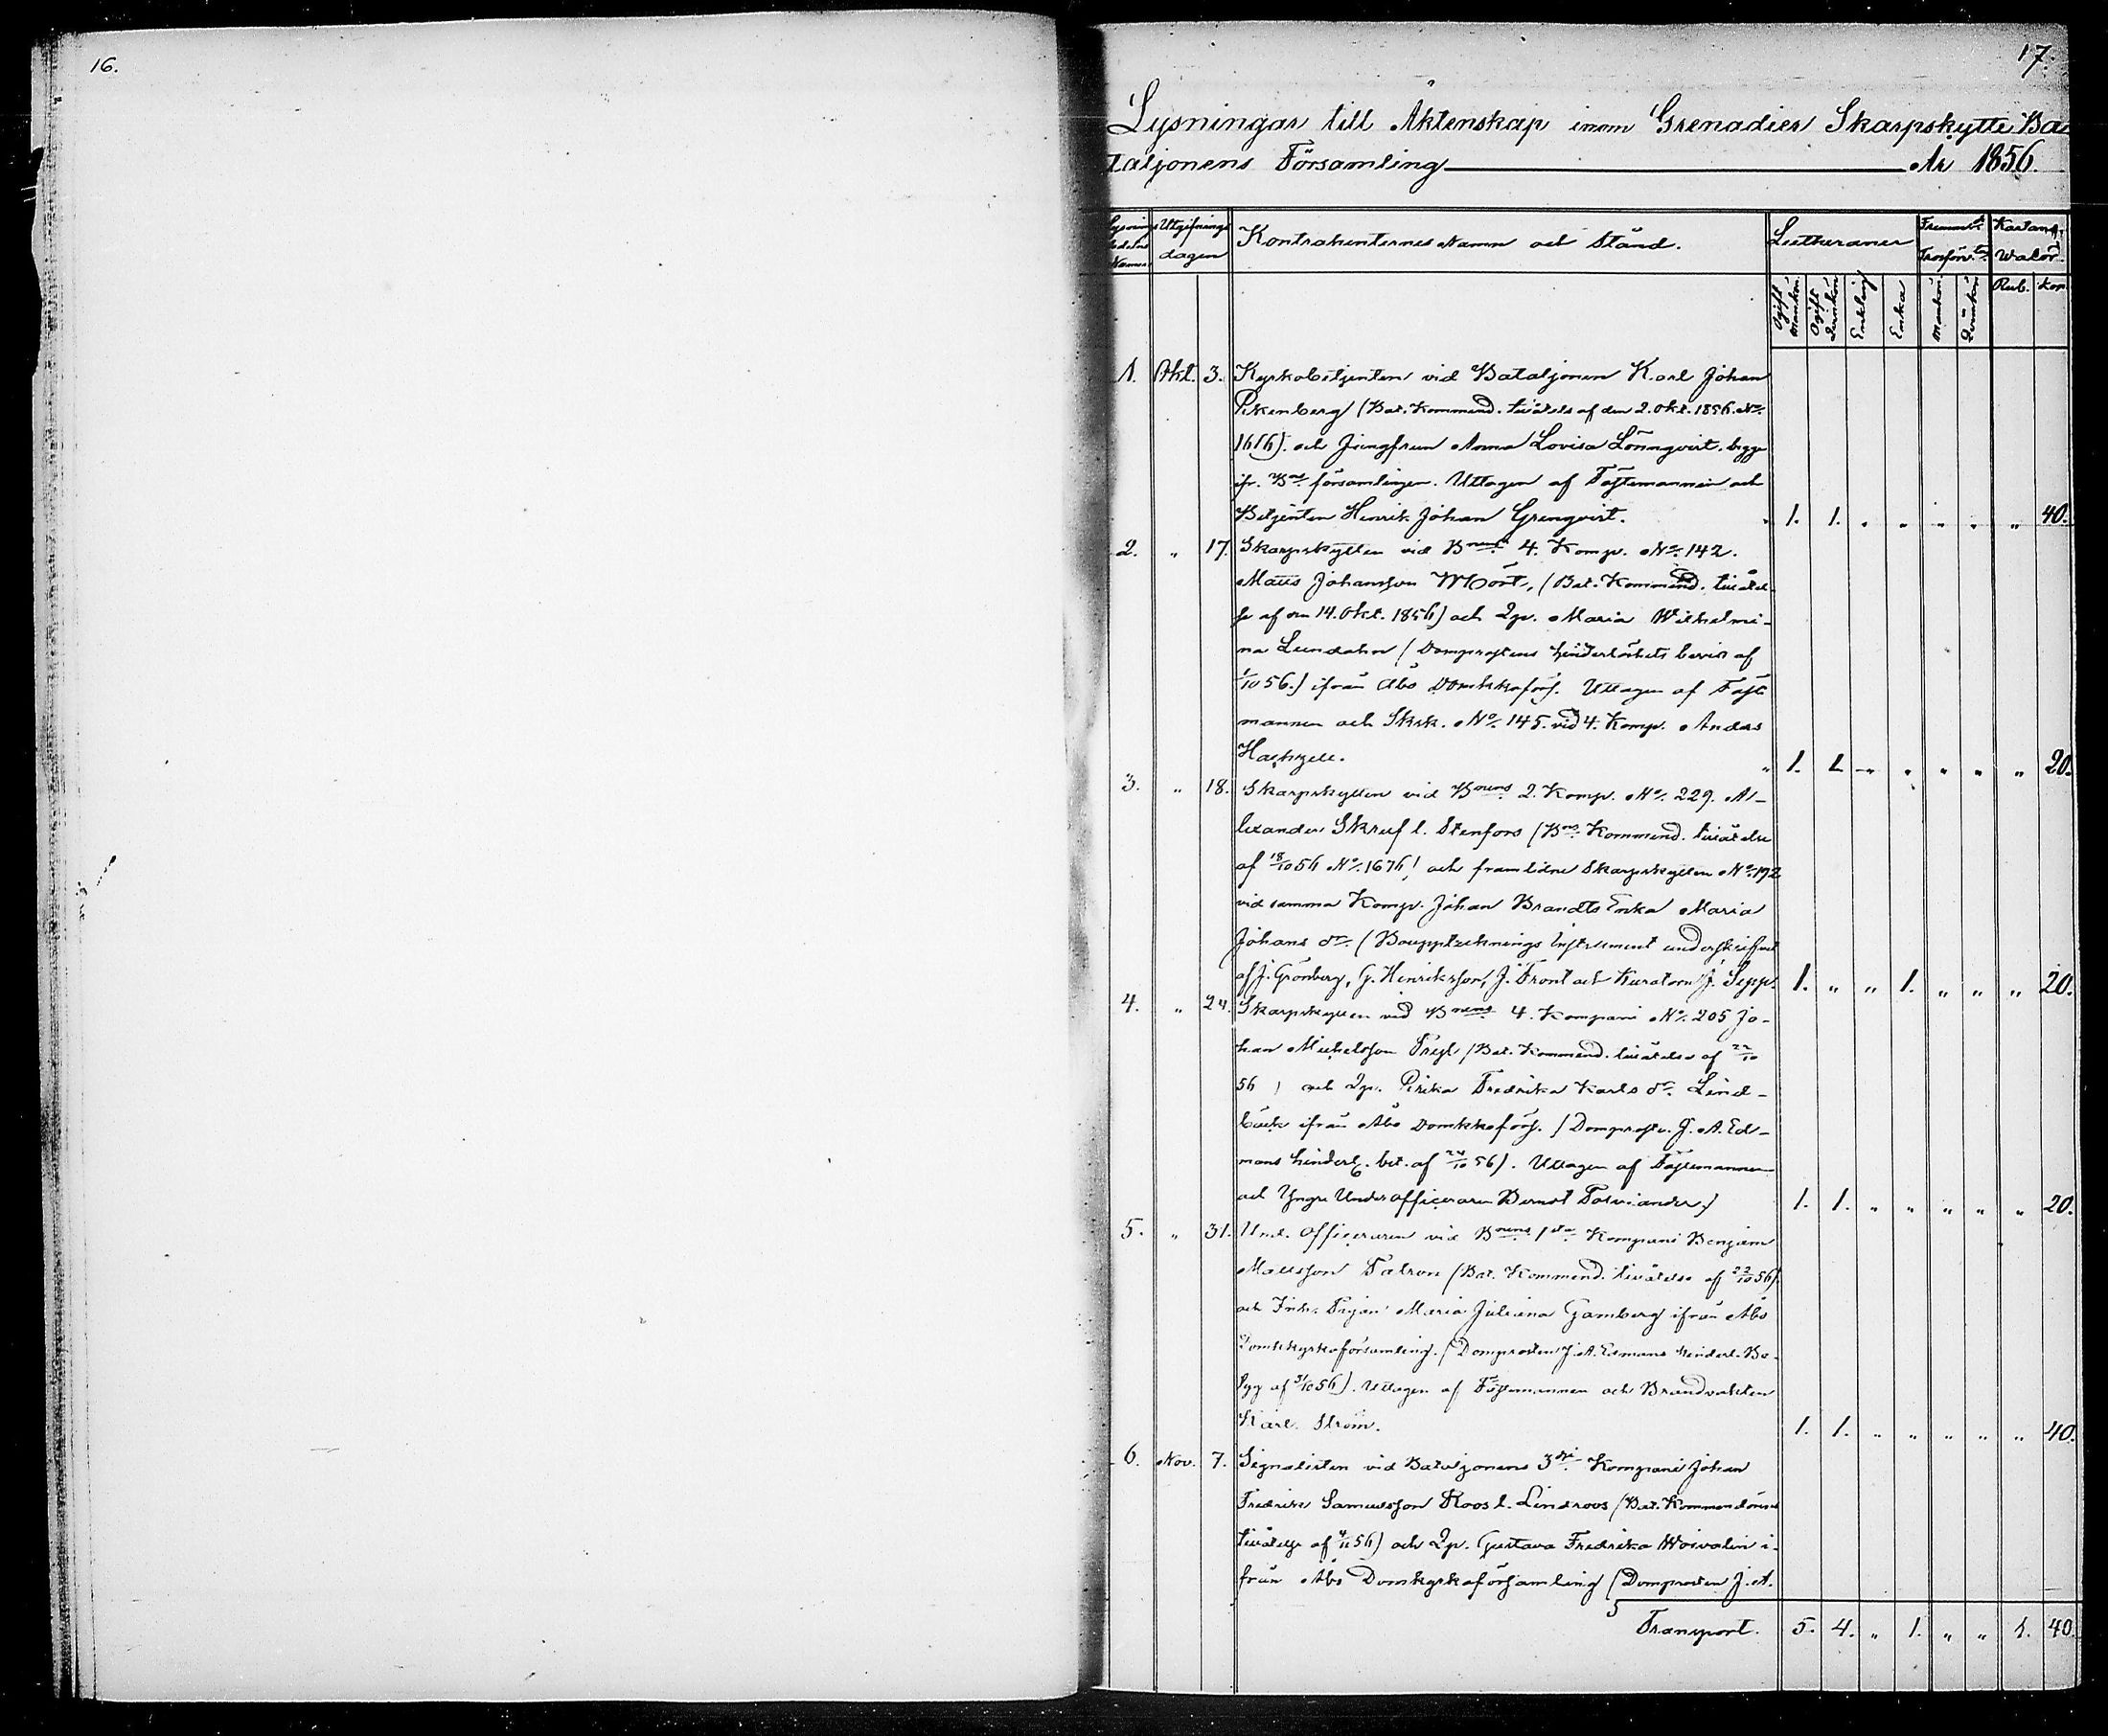 16.
17.
Lysningar till Äktenskap inom Grenadier Skarpskytte Ba
taljonens Församling År 1856.
Lysnings Utgifnings Kontrahenternes Namn och Stånd. Lutheraner Främm. Kartang.
Sedelns Namn dagen Trosförv. Walör.
Ogift Mankön Ogift Qvinkön Enkling Enka Mankön Qvinkön Rub. Kop.
1. Okt. 3. Kyrkobetjenten vid Bataljonen Karl Johan
Pikenberg (Bat. Kommend. tillåtels af den 2. Okt. 1856. No.
1616). och Jungfrun Anna Lovisa Lönnqvist. begge
ifr. Bat. församlingen. Uttagen af Fästemannen och
Betjenten Henrik Johan Grenqvist. " 1. 1. " " " " " 40.
2. " 17. Skarpskytten vid Bnens 4. Komp. No. 142.
Matts Johansson Mört, (Bat. Kommend. tillåtel-
se af den 14. Okt. 1856) och Qp. Maria Wilhelmi-
na Lundahn (Domprostens hinderlöshets bevis af
/10 56.) ifrån Åbo Domkkoförs. Uttagen af Fäste
mannen och Skrk. No. 145. vid 4. Komp. Anders
" 1. 1. " " " " " 20.
3. " 18. Skarpskytten vid Bnens 2. Komp. No. 229. Al-
lexander Skruf l. Stenfors (Bns. Kommend. tillåtelse
af 18/10 56 No. 1676) och framlidne Skarpskytten No. 192
vid samma Komp. Johan Brandts Enka Maria
Johans dr. (Bouppteknings Instrument underskrifvet
af J. Grönberg, G. Henriksson, J. Front och Kuratorn J. Sepp. 1. " " 1. " " " 20.
4. " 24. Skarpskytten vid Bnens 4. Kompani No. 205 Jo-
han Michelsson Fregt (Bat. Kommend. tillåtelse af 22/10
56) och Qp. Fredrika Karls dr. Lind-
bäck ifrån Åbo Domkkoförs. (Domprost. J. A. Ed-
mans hinderl. bet. af 24/10 56). Uttagen af Fästemannen
och Yngre Underofficeraren Berndt 1. 1. " " " " " 20.
5. " 31. Und. Officeraren vid Bnens 1sta Kompani Benjam
Mattsson Falron (Bat. Kommend. tillåtelse af 22/10 56)
och Inh. Pigan Maria Juliana Gamberg ifrån Åbo
Domkyrkoförsamling. (Domprosten J. A. Edmans hinderl. Be-
tyg af 31/10 56). Uttagen af Fästemannen och Brandvakten
Karl Ström. 1. 1. " " " " " 40.
6. Nov. 7. Signalisten vid Bataljonens 3dje Kompani Johan
Fredrik Samuelsson Roos l. Lindroos (Bat. Kommendörens
tillåtelse af 4/11 56) och Qp. Gustava Fredrika Woivalin i-
från Åbo Domkyrkoförsamling (Domprosten J. A.
Transport. 5. 4. " 1. " " 1. 40.